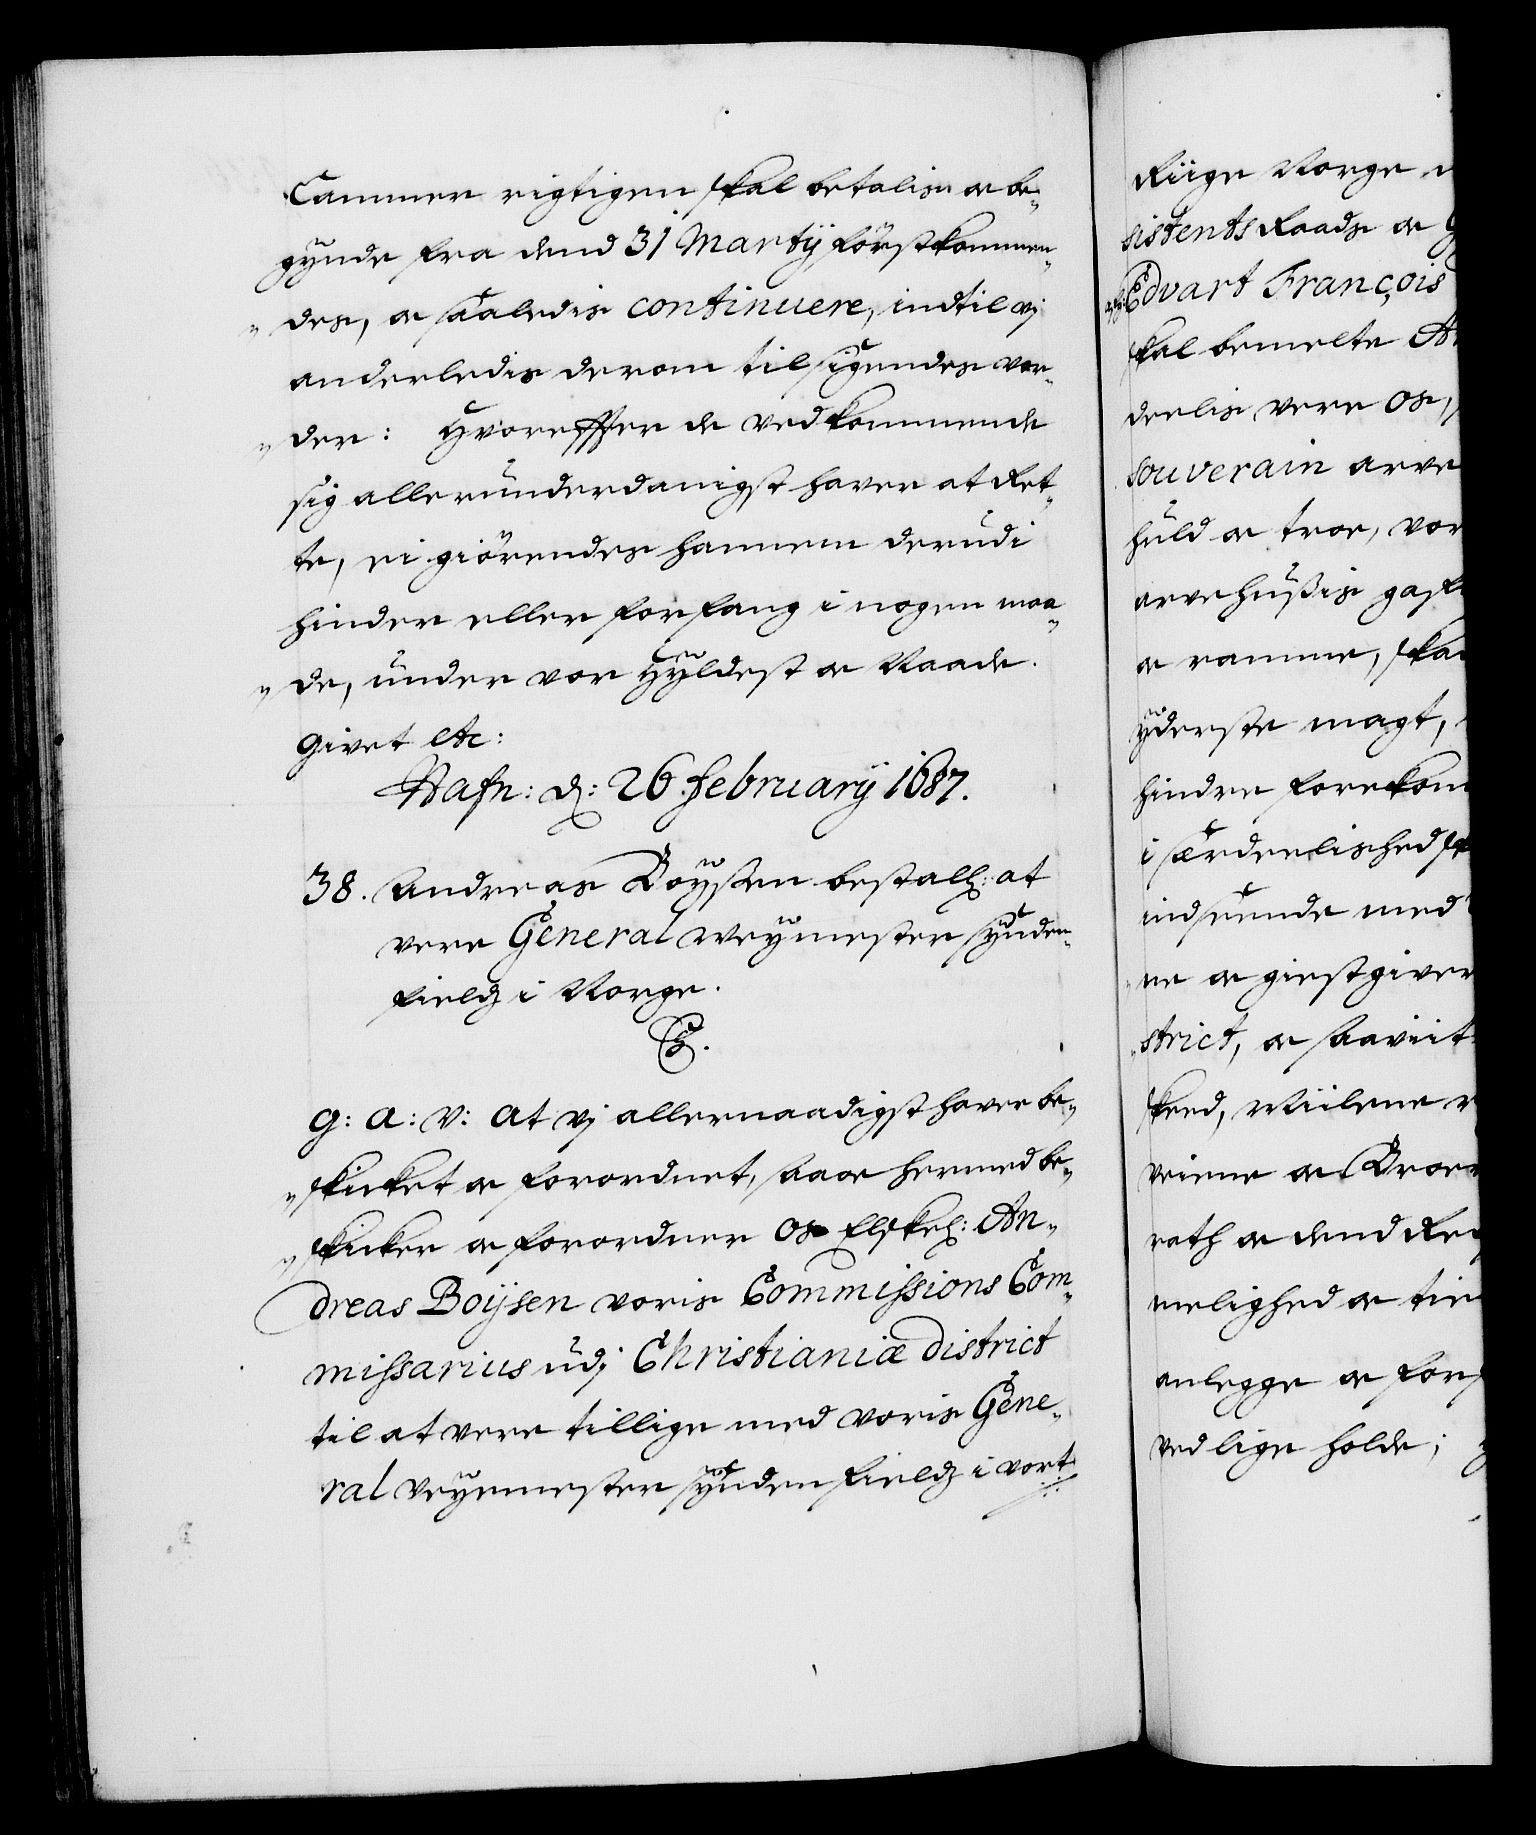 Cammer rigtigen skal betalis oc be„
gynde fra dend 31 Martij förstkommen„
„des, oc saaledis continuere, indtil vj
anderledis derom tilsigendes vor„
„der: Hvorefter de vedkommende
sig allerunderdanigst haver at ret„
te, ei giörendes hannem derudi
hinder eller forfang i nogen maa„
„de, under vor Hyldest oc Naade.
Givet etc:
Hafn: d: 26 February 1687.
38. Andreas Boysen bestall: at
vere General Weymester synden„
fields i Norge.
C5.
G: A: V: At vj allernaadigst haver be„
„skicket oc forordnet, saa oc hermed be„
„skicker oc forordner Os Elskel: An„
dreas Boijsen voris Commissions Com„
missarius udj Christianiæ District
til at vere tillige med voris Gene„
ral Veyemester synden fields i vort
Riige Norge
sistents Raads oc
Edvart François
skal bemelte
deelis vere Os,
souverain arve
huld oc troe, vor
arvehußis gaf
oc ramme, ska
yderste magt,
hindre forekom
i særdeelished
indseende med
ne oc giestgiver
strict, oc saaviit
skeed, Miilene
veiene oc Broer
rath oc dend
melighed oc tie
anlegge oc for
ved lige holde;